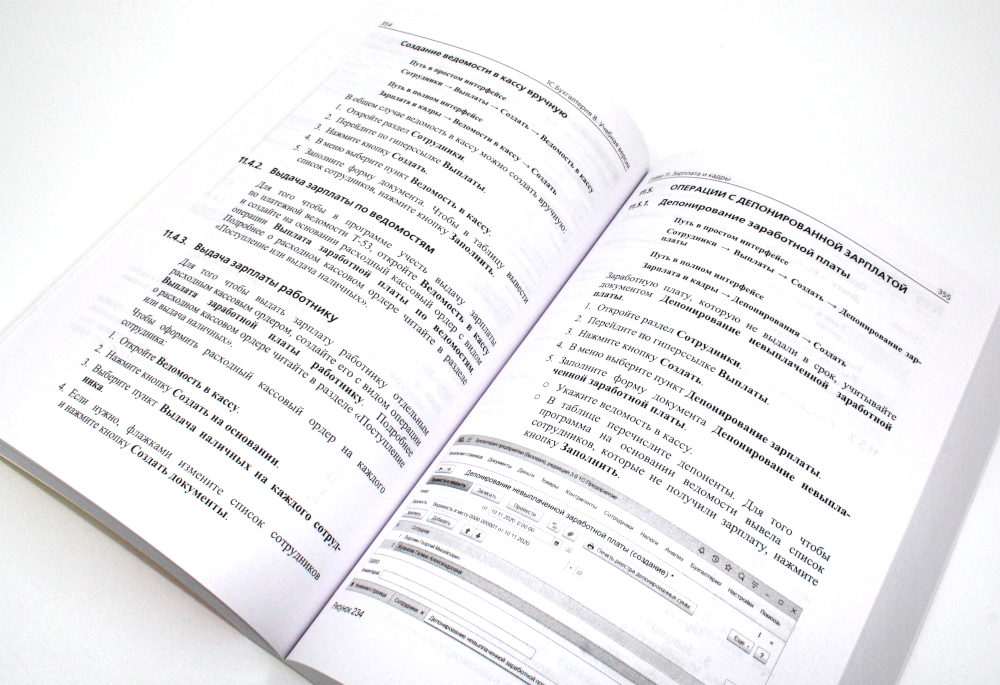 354
1С:Бухгалтерия 8. Учебная версия
Создание ведомости в кассу вручную
Путь в простом интерфейсе
Сотрудники → Выплаты → Создать → Ведомость в кассу
Путь в полном интерфейсе
Зарплата и кадры → Ведомости в кассу → Создать
В общем случае ведомость в кассу можно создать вручную:
1. Откройте раздел Сотрудники.
2. Перейдите по гиперссылке Выплаты.
3. Нажмите кнопку Создать.
4. В меню выберите пункт Ведомость в кассу.
5. Заполните форму документа. Чтобы в таблицу вывести
список сотрудников, нажмите кнопку Заполнить.
11.4.2. Выдача зарплаты по ведомостям
Для того чтобы в программе учесть выдачу зарплаты
по платежной ведомости Т-53, откройте Ведомость в кассу
и создайте на основании расходный кассовый ордер с видом
операции Выплата заработной платы по ведомостям.
Подробнее о расходном кассовом ордере читайте в разделе
«Поступление или выдача наличных».
11.4.3. Выдача зарплаты работнику
Для того чтобы выдать зарплату работнику отдельным
расходным кассовым ордером, создайте его с видом операции
Выплата заработной платы работнику. Подробнее
о расходном кассовом ордере читайте в разделе «Поступление
или выдача наличных».
Чтобы оформить расходный кассовый ордер на каждого
сотрудника:
1. Откройте Ведомость в кассу.
2. Нажмите кнопку Создать на основании.
3. Выберите пункт Выдача наличных на каждого сотруд-
ника.
4. Если нужно, флажками измените список сотрудников
и нажмите кнопку Создать документы.
Глава 11. Зарплата и кадры
355
11.5. ОПЕРАЦИИ С ДЕПОНИРОВАННОЙ ЗАРПЛАТОЙ
11.5.1. Депонирование заработной платы
Путь в простом интерфейсе
Сотрудники → Выплаты → Создать → Депонирование зар-
платы
Путь в полном интерфейсе
Зарплата и кадры → Депонирования → Создать
Заработную плату, которую не выдали в срок, учитывайте
документом Депонирование невыплаченной заработной
платы.
1. Откройте раздел Сотрудники.
2. Перейдите по гиперссылке Выплаты.
3. Нажмите кнопку Создать.
4. В меню выберите пункт Депонирование зарплаты.
5. Заполните форму документа Депонирование невыпла-
ченной заработной платы.
○ Укажите ведомость в кассу.
○ В таблице перечислите депоненты. Для того чтобы
программа на основании ведомости вывела список
сотрудников, которые не получили зарплату, нажмите
кнопку Заполнить.
Начальная страница Документы Деньги Товары Контрагенты Сотрудники Налоги Анализ Бухгалтерия Настройки Помощь
Депонирование невыплаченной заработной платы (создание) *
Записать Провести Печать реестра депонированных сумм Еще ?
от: 10.11.2020 0:00:00
Ведомость в кассу 0000-000001 от 10.11.2020
Добавить
Сотрудник
Начальная страница Сотрудники × Депонирование невыплаченной заработной
Рисунок 234